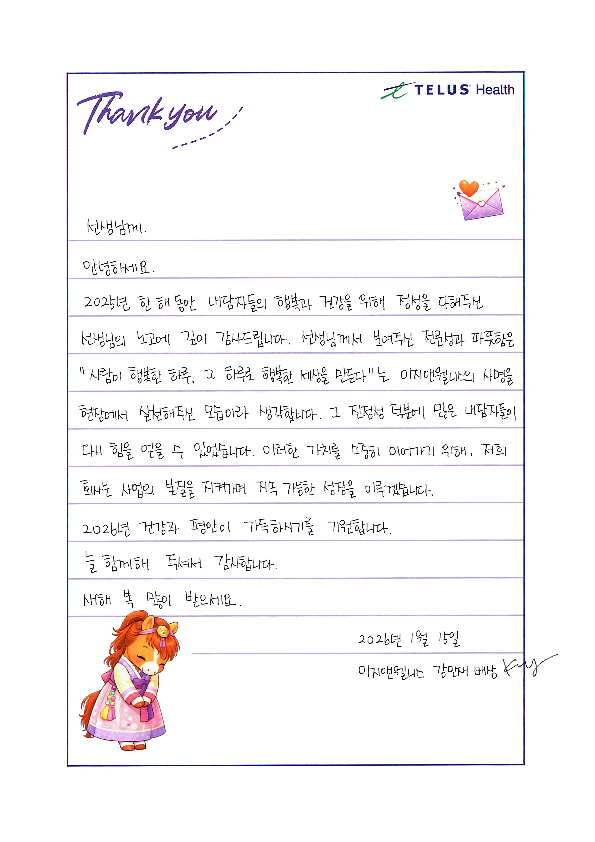 Thank you
TELUS Health
선생님께.
안녕하세요.
2025년 한 해 동안 내담자들의 행복과 건강을 위해 정성을 다해주신
선생님의 노고에 깊이 감사드립니다. 선생님께서 보여주신 전문성과 따뜻함은
"사람이 행복한 하루, 그 하루로 행복한 세상을 만든다"는 이지앤웰니스의 사명을
현장에서 실천해주신 모습이라 생각합니다. 그 진정성 덕분에 많은 내담자들이
다시 힘을 얻을 수 있었습니다. 이러한 가치를 소중히 이어가기 위해, 저희
회사는 사업의 본질을 지켜가며 지속 가능한 성장을 이루겠습니다.
2026년 건강과 평안이 가득하시기를 기원합니다.
늘 함께해 주셔서 감사합니다.
새해 복 많이 받으세요.
2026년 1월 15일
이지앤웰니스 강민재 배상